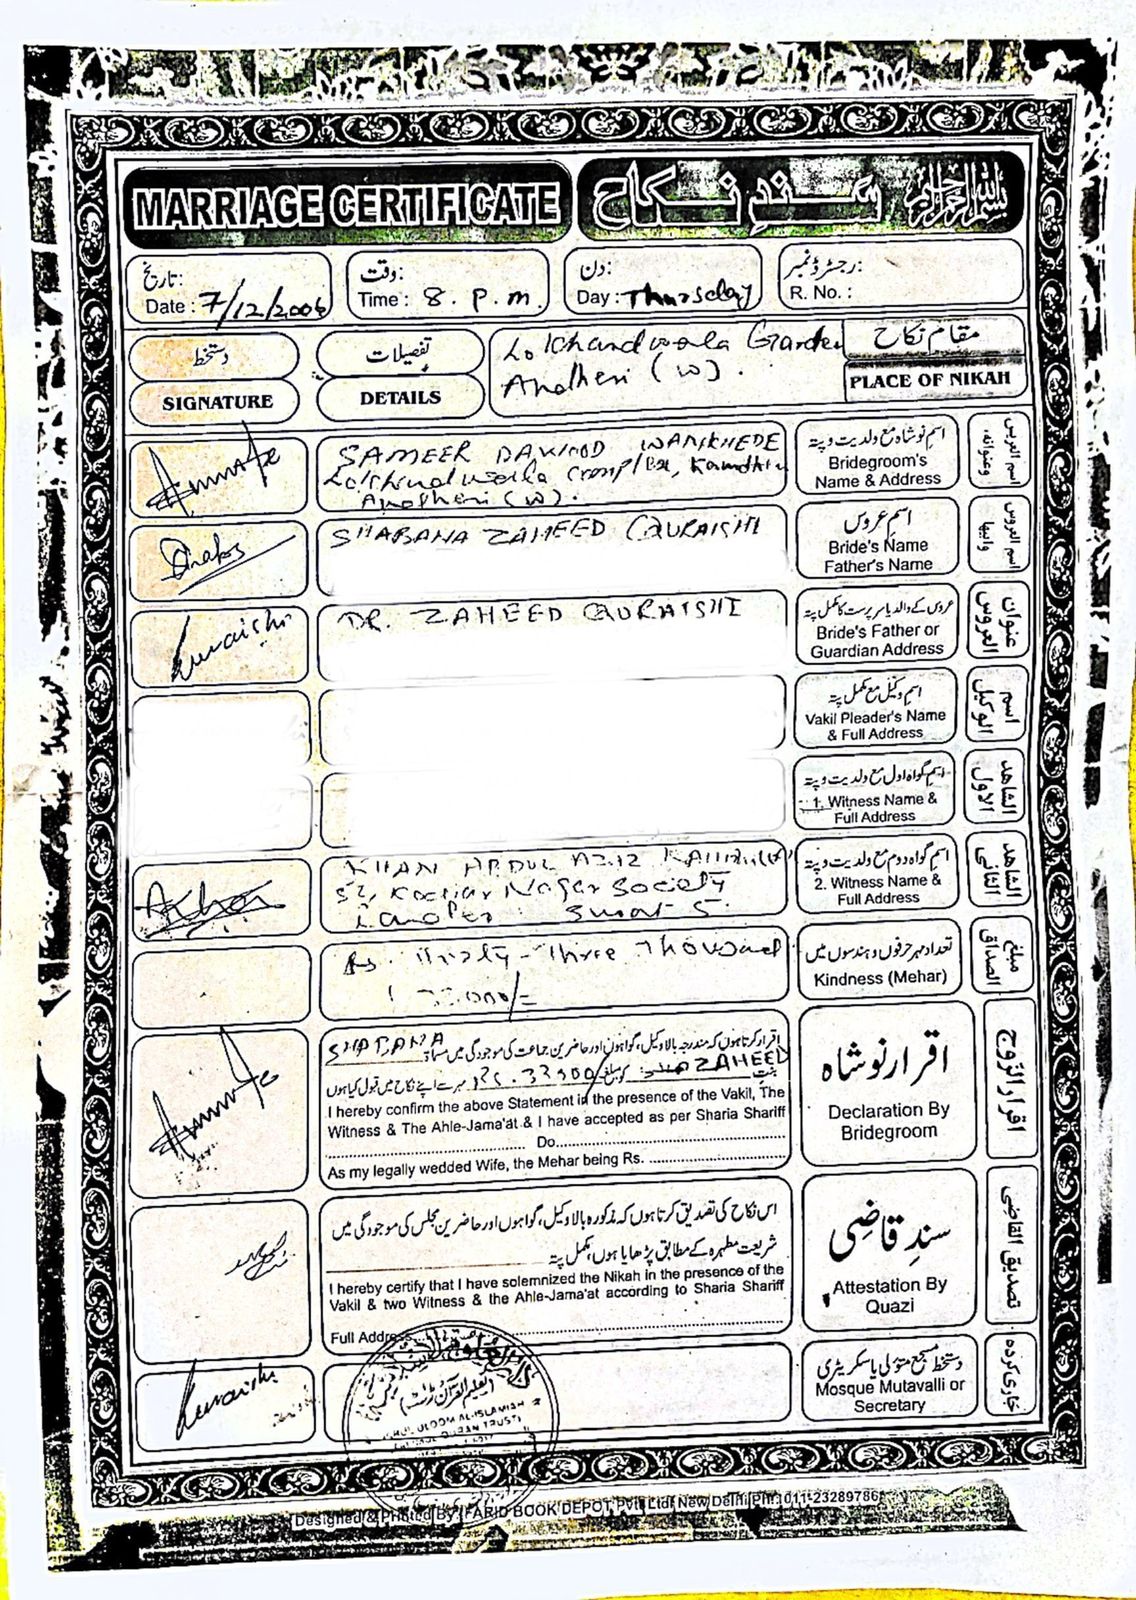 MARRIAGE CERTIFICATE
سندِ نکاح
بسم اللہ الرحمن الرحیم
تاریخ:
Date : 7/12/2006
وقت:
Time : 8. P.m.
دن:
Day : Thursday
رجسٹرڈ نمبر:
R. No. :
دستخط
SIGNATURE
تفصیلات
DETAILS
Lokhandwala Garden
Andheri (W).
مقام نکاح
PLACE OF NIKAH
SAMEER DAWOOD WANKHEDE
Lokhandwala Complex,
Andheri (W).
اسم نوشاہ مع ولدیت و پتہ
Bridegroom's
Name & Address
اسم العریس
وعنوانہ
SHABANA ZAHEED QURAISHI
اسمِ عروس
Bride's Name
Father's Name
اسم العروس
وابیها
Quraishi
DR. ZAHEED QURAISHI
عروس کے والد یا سرپرست کا مکمل پتہ
Bride's Father or
Guardian Address
عنوان
العروس
اسمِ وکیل مع مکمل پتہ
Vakil Pleader's Name
& Full Address
اسم
الوکیل
اسمِ گواہ اول مع ولدیت و پتہ
1. Witness Name &
Full Address
الشاهد
الاول
KHAN ABDUL AZIZ
Nagar Society
Surat 5.
اسمِ گواہ دوم مع ولدیت و پتہ
2. Witness Name &
Full Address
الشاهد
الثانی
Rs. Thirty-Three Thousand
33,000/=
تعداد مہر حرفوں و ہندسوں میں
Kindness (Mehar)
مبلغ
الصداق
SHABANA
اقرار کرتا ہوں کہ مندرجہ بالا وکیل، گواہوں اور حاضرین جماعت کی موجودگی میں مسماۃ
بنت ZAHEED کو مبلغ Rs. 33000/ مہر سے اپنے نکاح میں قبول کیا ہوں
I hereby confirm the above Statement in the presence of the Vakil, The
Witness & The Ahle-Jama'at & I have accepted as per Sharia Shariff
Do
As my legally wedded Wife, the Mehar being Rs.
اقرار نوشاہ
Declaration By
Bridegroom
اقرار الزوج
اس نکاح کی تصدیق کرتا ہوں کہ مذکورہ بالا وکیل، گواہوں اور حاضرین مجلس کی موجودگی میں
شریعت مطہرہ کے مطابق پڑھایا ہوں، مکمل پتہ
I hereby certify that I have solemnized the Nikah in the presence of the
Vakil & two Witness & the Ahle-Jama'at according to Sharia Shariff
Full Address
سندِ قاضِی
Attestation By
Quazi
تصدیق القاضی
Quraishi
دستخط مسجد متولی یا سکریٹری
Mosque Mutavalli or
Secretary
جاری کردہ
ULOOM AL-ISLAMIAH
QURAN TRUST
Designed & Printed By : FARID BOOK DEPOT Pvt. Ltd. New Delhi Ph : 011-23289786